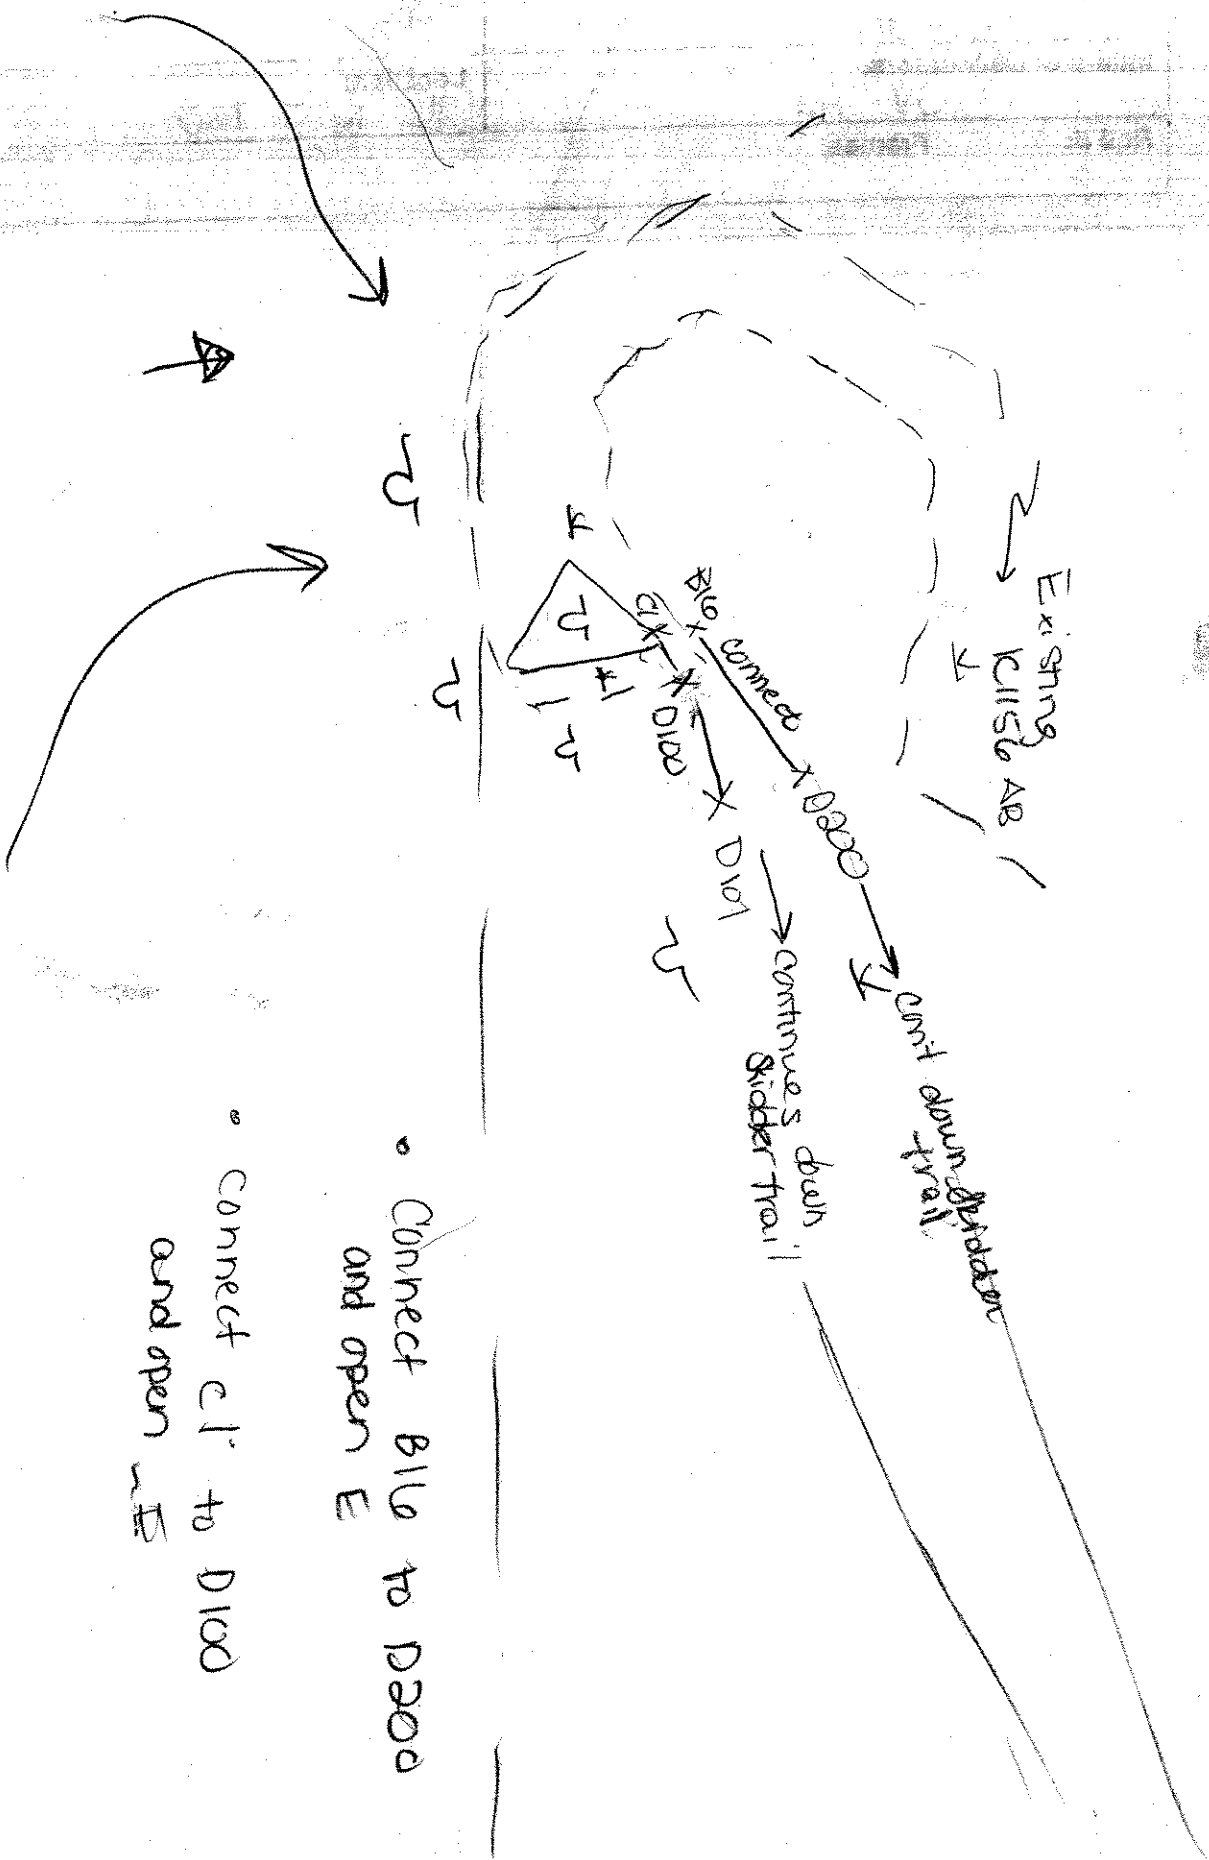 Existing
K1156 AB
B16
connect
D200
cont down skidder
trail
C1
D100
D101
continues down
skidder trail
• Connect B16 to D200
and open E
• Connect C1 to D100
and open E